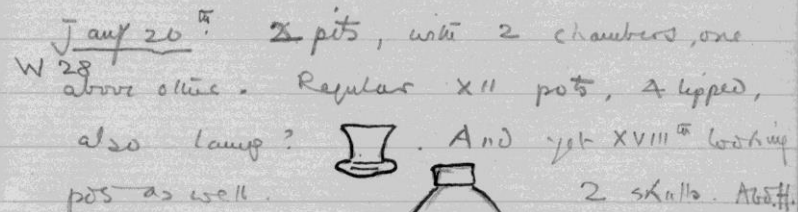 Jany 20th. 2 pits, with 2 chambers, one
W 28
above other. Regular XII pots, 4 lipped,
also lamp? . And yet XVIIIth looking
pots as well. 2 skulls.